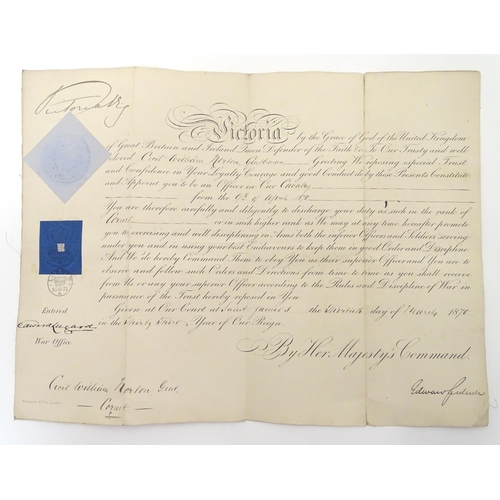 Victoria R
Victoria by the Grace of God of the United Kingdom
of Great Britain and Ireland Queen Defender of the Faith &c To Our Trusty and well
beloved Cecil William Norton Greeting We reposing especial Trust
and Confidence in Your Loyalty Courage and good Conduct do by these Presents Constitute
and Appoint you to be an Officer in Our Cavalry
from the
You are therefore carefully and diligently to discharge your duty as such in the rank of
Cornet or in such higher rank as We may at any time hereafter promote
you to exercising and well disciplining in Arms both the inferior Officers and Soldiers serving
under you and in using your best Endeavours to keep them in good Order and Discipline
And We do hereby Command Them to Obey You as their superior Officer and You are to
observe and follow such Orders and Directions from time to time as you shall receive
from Us or any your superior Officer according to the Rules and Discipline of War in
pursuance of the Trust hereby reposed in You
Given at Our Court at Saint James's the day of 1870
in the Thirty Third Year of Our Reign
By Her Majesty's Command
Entered
Edward Lugard
War Office
Cecil William Norton Gent
Cornet